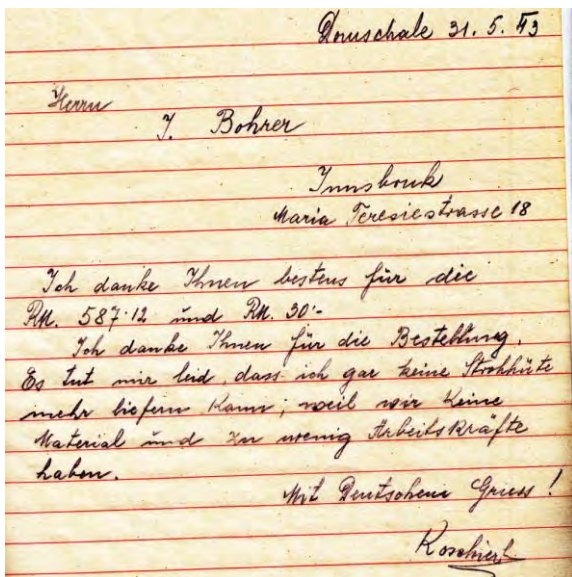 Domschale 31. 5. 43
Herrn
J. Bohrer
Innsbruk
Maria Teresiestrasse 18
Ich danke Ihnen bestens für die
RM. 587·12 und RM. 30·-
Ich danke Ihnen für die Bestellung.
Es tut mir leid, dass ich gar keine Strohhüte
mehr liefern kann; weil wir keine
Material und zu wenig Arbeitskräfte
haben.
Mit Deutschem Gruss!